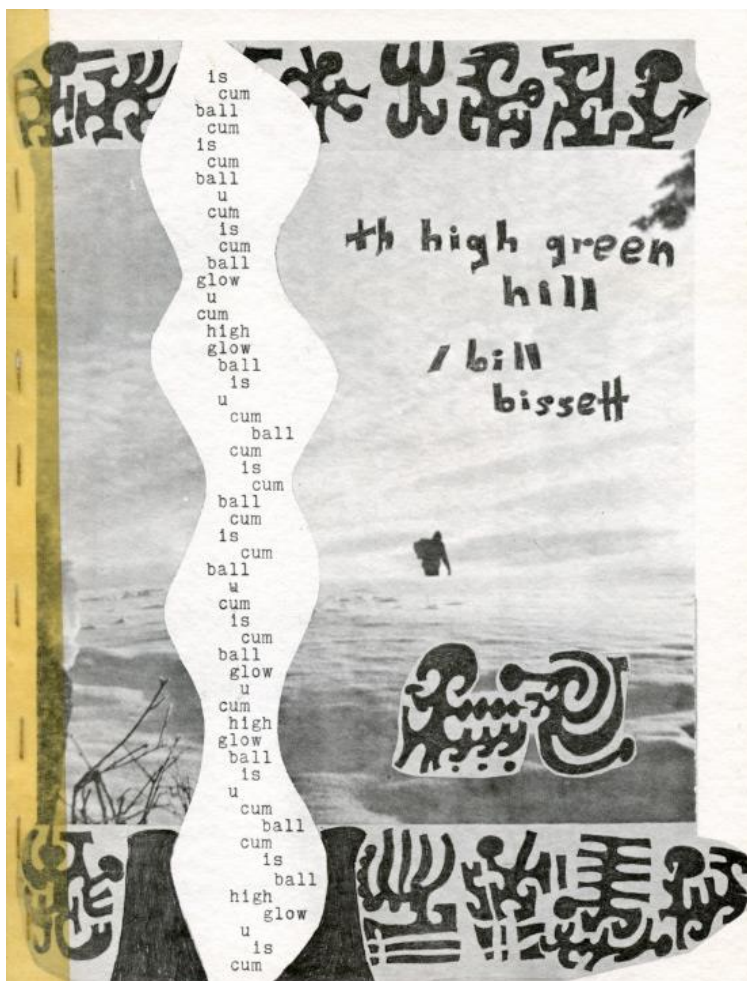 is
cum
ball
cum
is
cum
ball
u
cum
is
cum
ball
glow
u
cum
high
glow
ball
is
u
cum
ball
cum
is
cum
ball
cum
is
cum
ball
u
cum
is
cum
ball
glow
u
cum
high
glow
ball
is
u
cum
ball
cum
is
ball
high
glow
u
is
cum
th high green
hill
/ bill
bissett